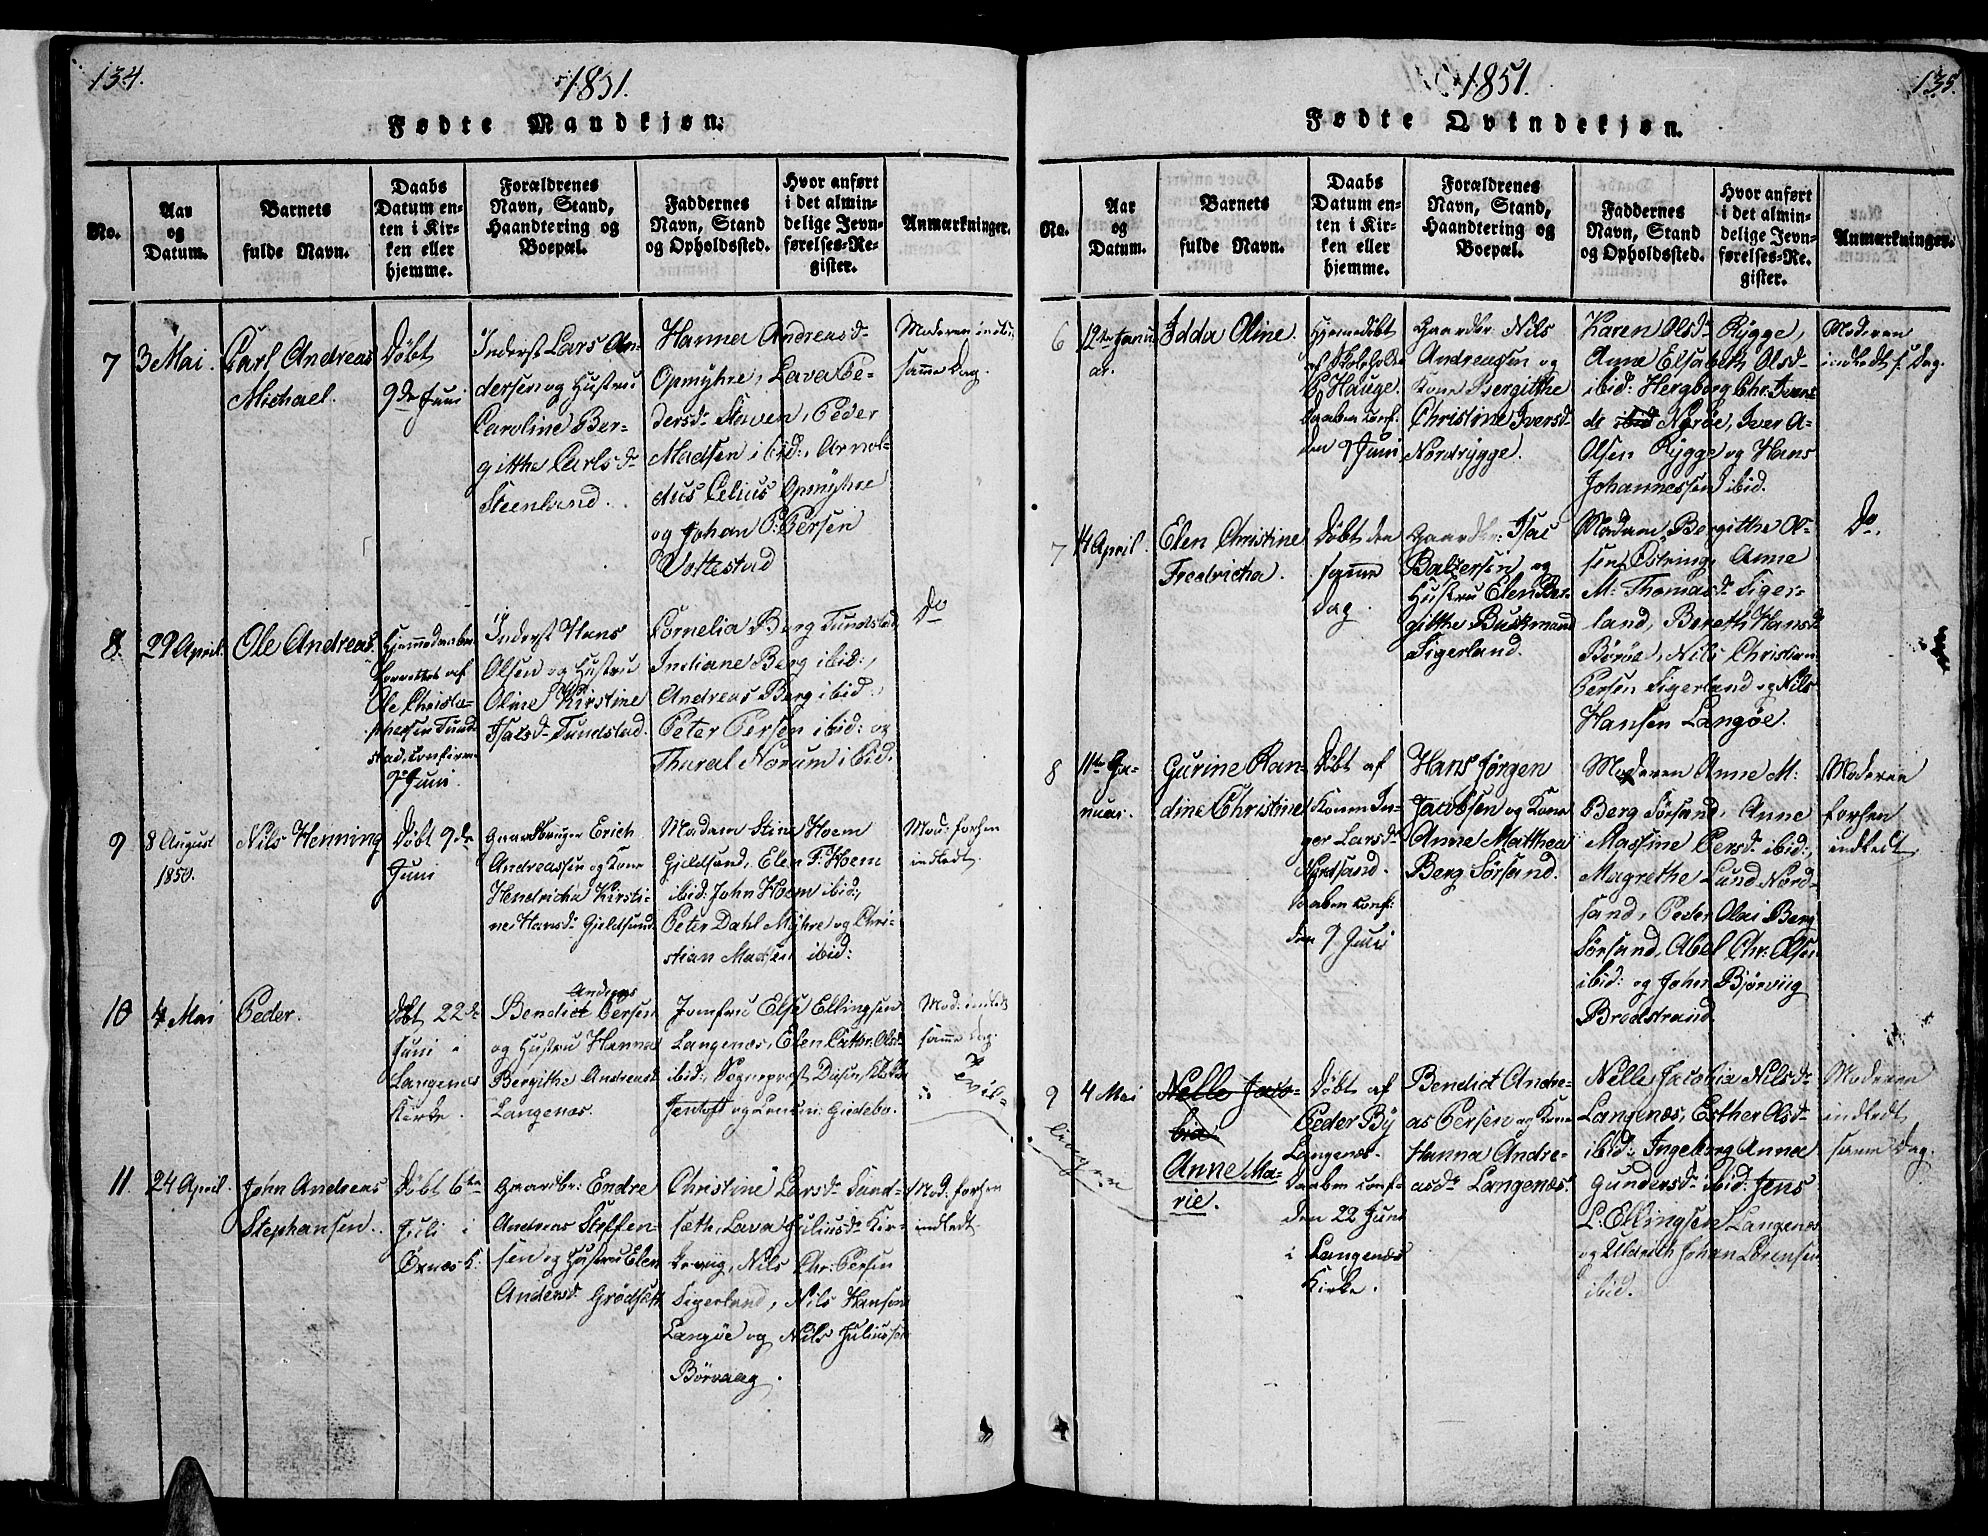 134.
1851.
Fødte Mandkjøn.
No.
Aar
og
Datum.
Barnets
fulde Navn.
Daabs
Datum en-
ten i Kir-
ken eller
hjemme.
Forældrenes
Navn, Stand,
Haandtering og
Boepæl.
Faddernes
Navn, Stand
og Opholdssted.
Hvor anført
i det almin-
delige Jevn-
førelses-Re-
gister.
Anmærkninger.
7
3 Mai.
Carl Andreas
Michael.
Døbt
9de Juni
Inderst Lars An-
dersen og Hustru
Caroline Ber-
gitthe Carlsd.
Steenland.
Hanna Andreasd.
Opmyhre, Lava Pe-
dersd. Staven, Peder
Madsen ibid:, Arnol-
dus Celius Opmyhre
og Johan P. Persen
Vottestad
Moderen indl.
samme Dag.
8
29 April.
Ole Andreas.
Hjemmedaaben
forrettet af
Ole Christo-
phersen Tund-
stad, confirm
9de Juni.
Inderst Hans
Olsen og Hustru
Oline Kirstine
Isaksd. Tundstad.
Cornelia Berg Tundstad,
Indiane Berg ibid:,
Andreas Berg ibid:,
Peter Persen ibid: og
Thural Norum ibid.
Do
9
8 August
1850.
Nils Henning
Døbt 9de
Juni
Gaardbruger Erich
Andreassen og Kone
Hendricha Kirsti-
ne Hansd. Gjeldsund
Madam Stine Hoem
Gjeldsund, Elen F. Hoem
ibid: John Hoem ibid:,
Peter Dahl Myhre og Chri-
stian Madsen ibid:
Mod: forhen
indledt.
10
4 Mai
Peder.
Døbt 22de
Juni i
Langenæs
Kirke.
Andreas
Bendict Persen
og Hustru Hanna
Bergithe Andreasd.
Langenæs.
Jomfru Else Ellingsen
Langenæs, Elen Cathr. Olsd.
ibid:, Sognepræst Dusin, Klokker
Jentoft og Gidebo.
Mod: indledt
samme Dag.
Tvil-
11
24 April.
John Andreas
Stephansen.
Døbt 6te
Juli i
Øxnæs K:
Gaardbr: Endre
Andreas Steffen-
sen og Hustru Elen
Andersd. Grødsæth
Christine Larsd. Sund-
sæth, Lava Juliusd. Kir-
keviig, Nils Chr: Persen
Tigerland, Nils Hansen
Langøe og Nils Juliussen
Børvaag.
Mod: forhen
indledt.
135.
1851.
Fødte Qvindekjøn.
No.
Aar
og
Datum.
Barnets
fulde Navn.
Daabs
Datum en-
ten i Kir-
ken eller
hjemme.
Forældrenes
Navn, Stand,
Haandtering og
Boepæl.
Faddernes
Navn, Stand
og Opholdssted.
Hvor anført
i det almin-
delige Jevn-
førelses-Re-
gister.
Anmærkninger.
6
12te Janu
ar.
Idda Oline.
Hjemmedøbt
af Skoleholder
P. Hauge.
Daaben conf:
den 9 Juni
Gaardbr: Nils
Andreassen og
Kone Bergitthe
Christine Iversd.
Nordrygge.
Karen Olsd. Rygge,
Anne Elsabeth Olsd.
ibid: Hergborg Chr: Ivers-
d: Nyrøe, Iver A-
Olsen Rygge og Hans
Johannessen ibid.
Moderen
indledt s: Dag.
7
14 April.
Elen Christine
Fredricha.
Døbt den
samme
Dag.
Gaardbr: Isac
Baltersen og
Hustru Elen Ber-
gitthe Buchmand
Tigerland.
Madam Bergitthe Ol-
sen Østring, Anne
M: Thomasd. Tiger-
land, Bereth Hansd.
Børøe, Nils Christian
Persen Tigerland og Nils
Hansen Langøe.
Do.
8
11te Ja-
nuar.
Gurine Ran-
dine Christine
Døbt af
Konen In-
ger Larsd.
Nordsand.
Daaben conf:
den 9 Juni
Hans Jørgen
Jacobsen og Kone
Anne Matthea
Berg Sørsand.
Moderen Anne M:
Berg Sørsand, Anne
Massine Persd. ibid:,
Magrethe Lund Nord-
sand, Peder Olai Berg
Sørsand, Abel Chr: Olsen
ibid: og John Bjørviig
Brodstrand
Moderen
forhen
indledt
9
4 Mai
lingen
Nelle Jaco-
bia
Anne Ma-
rie.
Døbt af
Peder By
Langenæs.
Daaben conf:
den 22 Juni
i Langenæs
Kirke.
Bendict Andre-
as Persen og Kone
Hanna Andre-
asd. Langenæs.
Nelle Jacobia Nilsd.
Langenæs, Esther Olsd.
ibid:, Ingeborg Anna
Gundersd. ibid: Jens
L: Ellingsen Langenæs
og Uldrich Johan Lorensen
ibid.
Moderen
indledt
samme Dag.